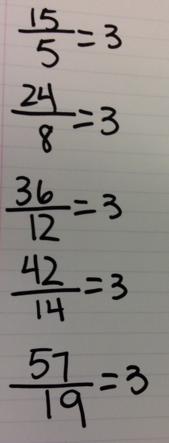 15/5=3
24/8=3
36/12=3
42/14=3
57/19=3